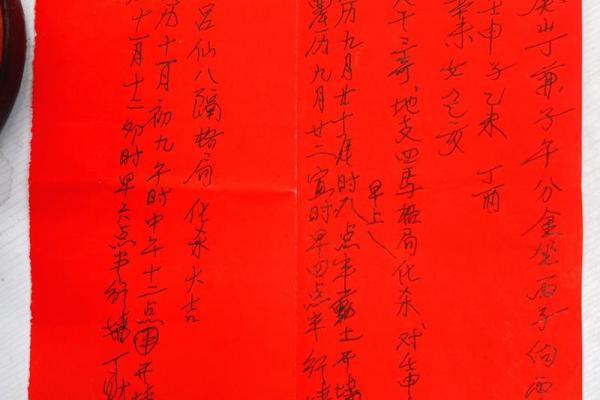 庚山丁兼子午分金坐丙子向丙
壬申子乙未 丁酉
辛未女乙亥
天干三奇地支四马格局化杀 对
早上八
农历九月廿十辰时九点半动土开
农历九月廿二寅时早四点半行
吕仙八隔格局 化杀大吉
历十一月初九午时中午十二点开
十一月十二卯时早六点半行 丁财